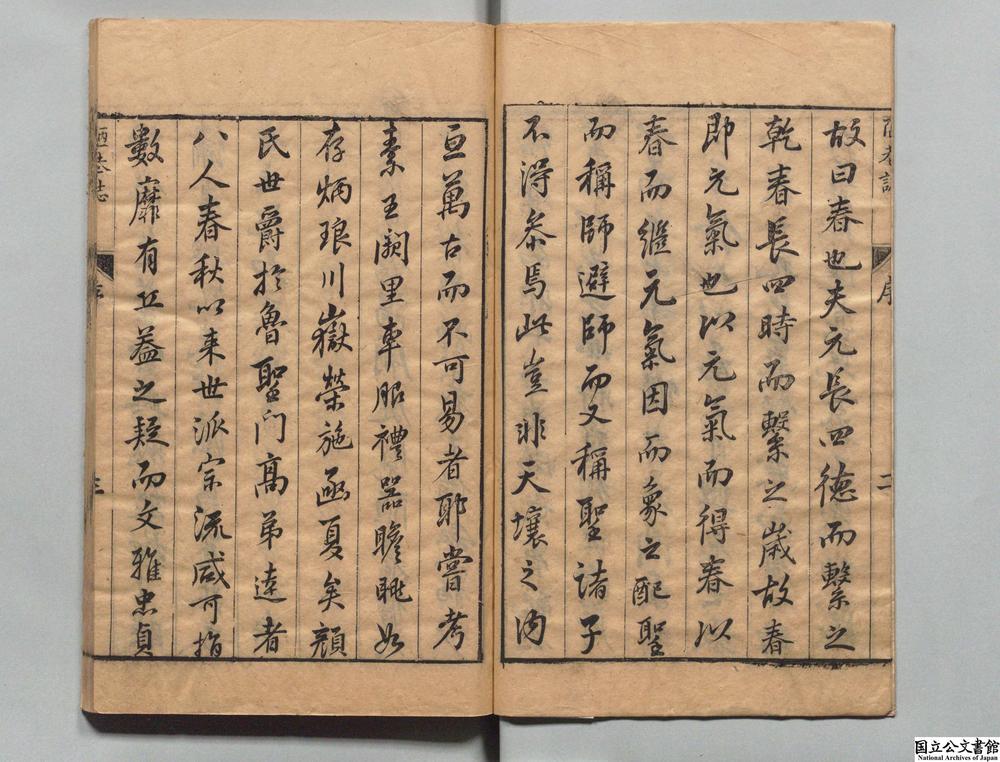 故曰春也夫元長四德而繫之
乾春長四時而繫之歲故春
即元氣也以元氣而得春以
春而繼元氣因而象之配聖
而稱師避師而又稱聖諸子
不得參焉此豈非天壤之內
亘萬古而不可易者耶嘗考
素王闕里車服禮器瞻眺如
存炳琅川嶽榮施函夏矣顔
氏世爵於魯聖门高弟達者
八人春秋以来世派宗流咸可指
數靡有丘葢之疑而文雅忠貞
陋巷誌
序
二
陋巷志
序
三
国立公文書館
National Archives of Japan